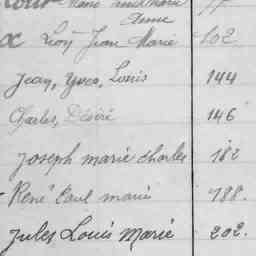 Marie
Anne
x Léon Jean Marie 102
Jean, Yves, Louis 144
Charles, Désiré 146
Joseph marie charles 182
René Paul marie 188.
Jules Louis Marie 202.